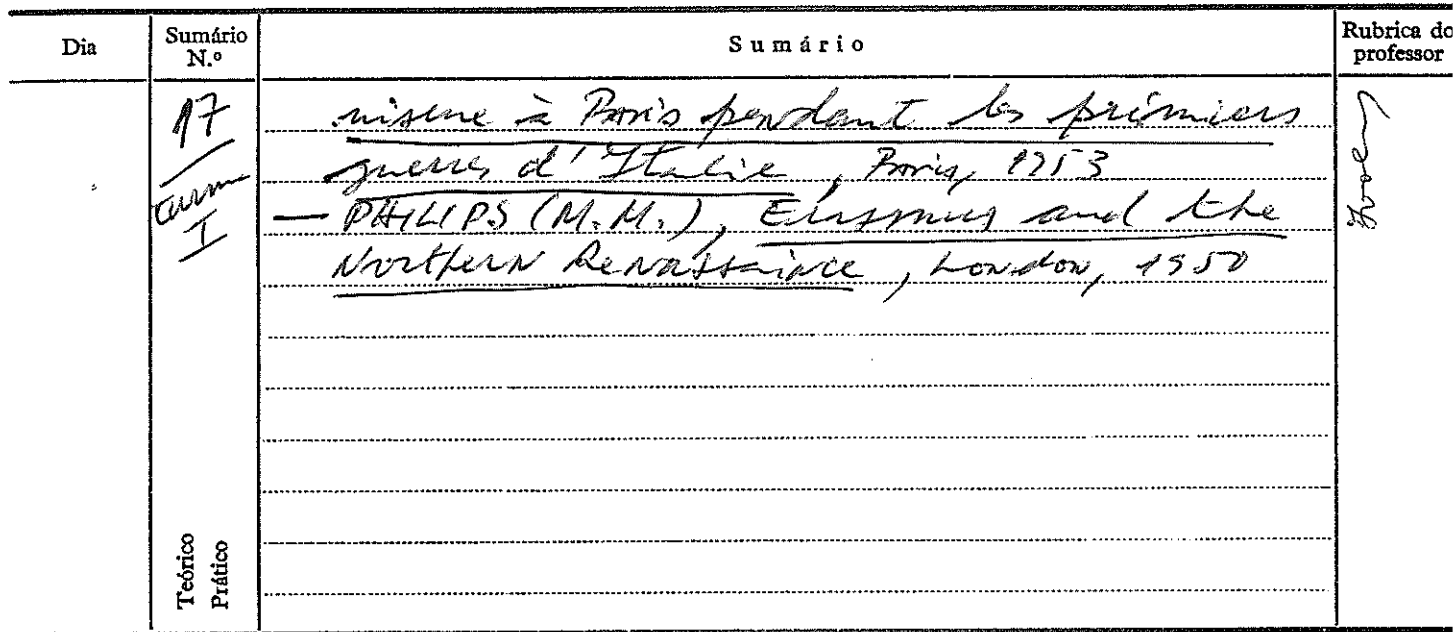 Dia
Sumário N.º
Sumário
Rubrica do professor
17
turma
I
nisme à Paris pendant les prémiers
guerres d'Italie, Paris, 1953
— PHILIPS (M.M.), Erasmus and the
Northern Renaissaince, London, 1950
Teórico
Prático